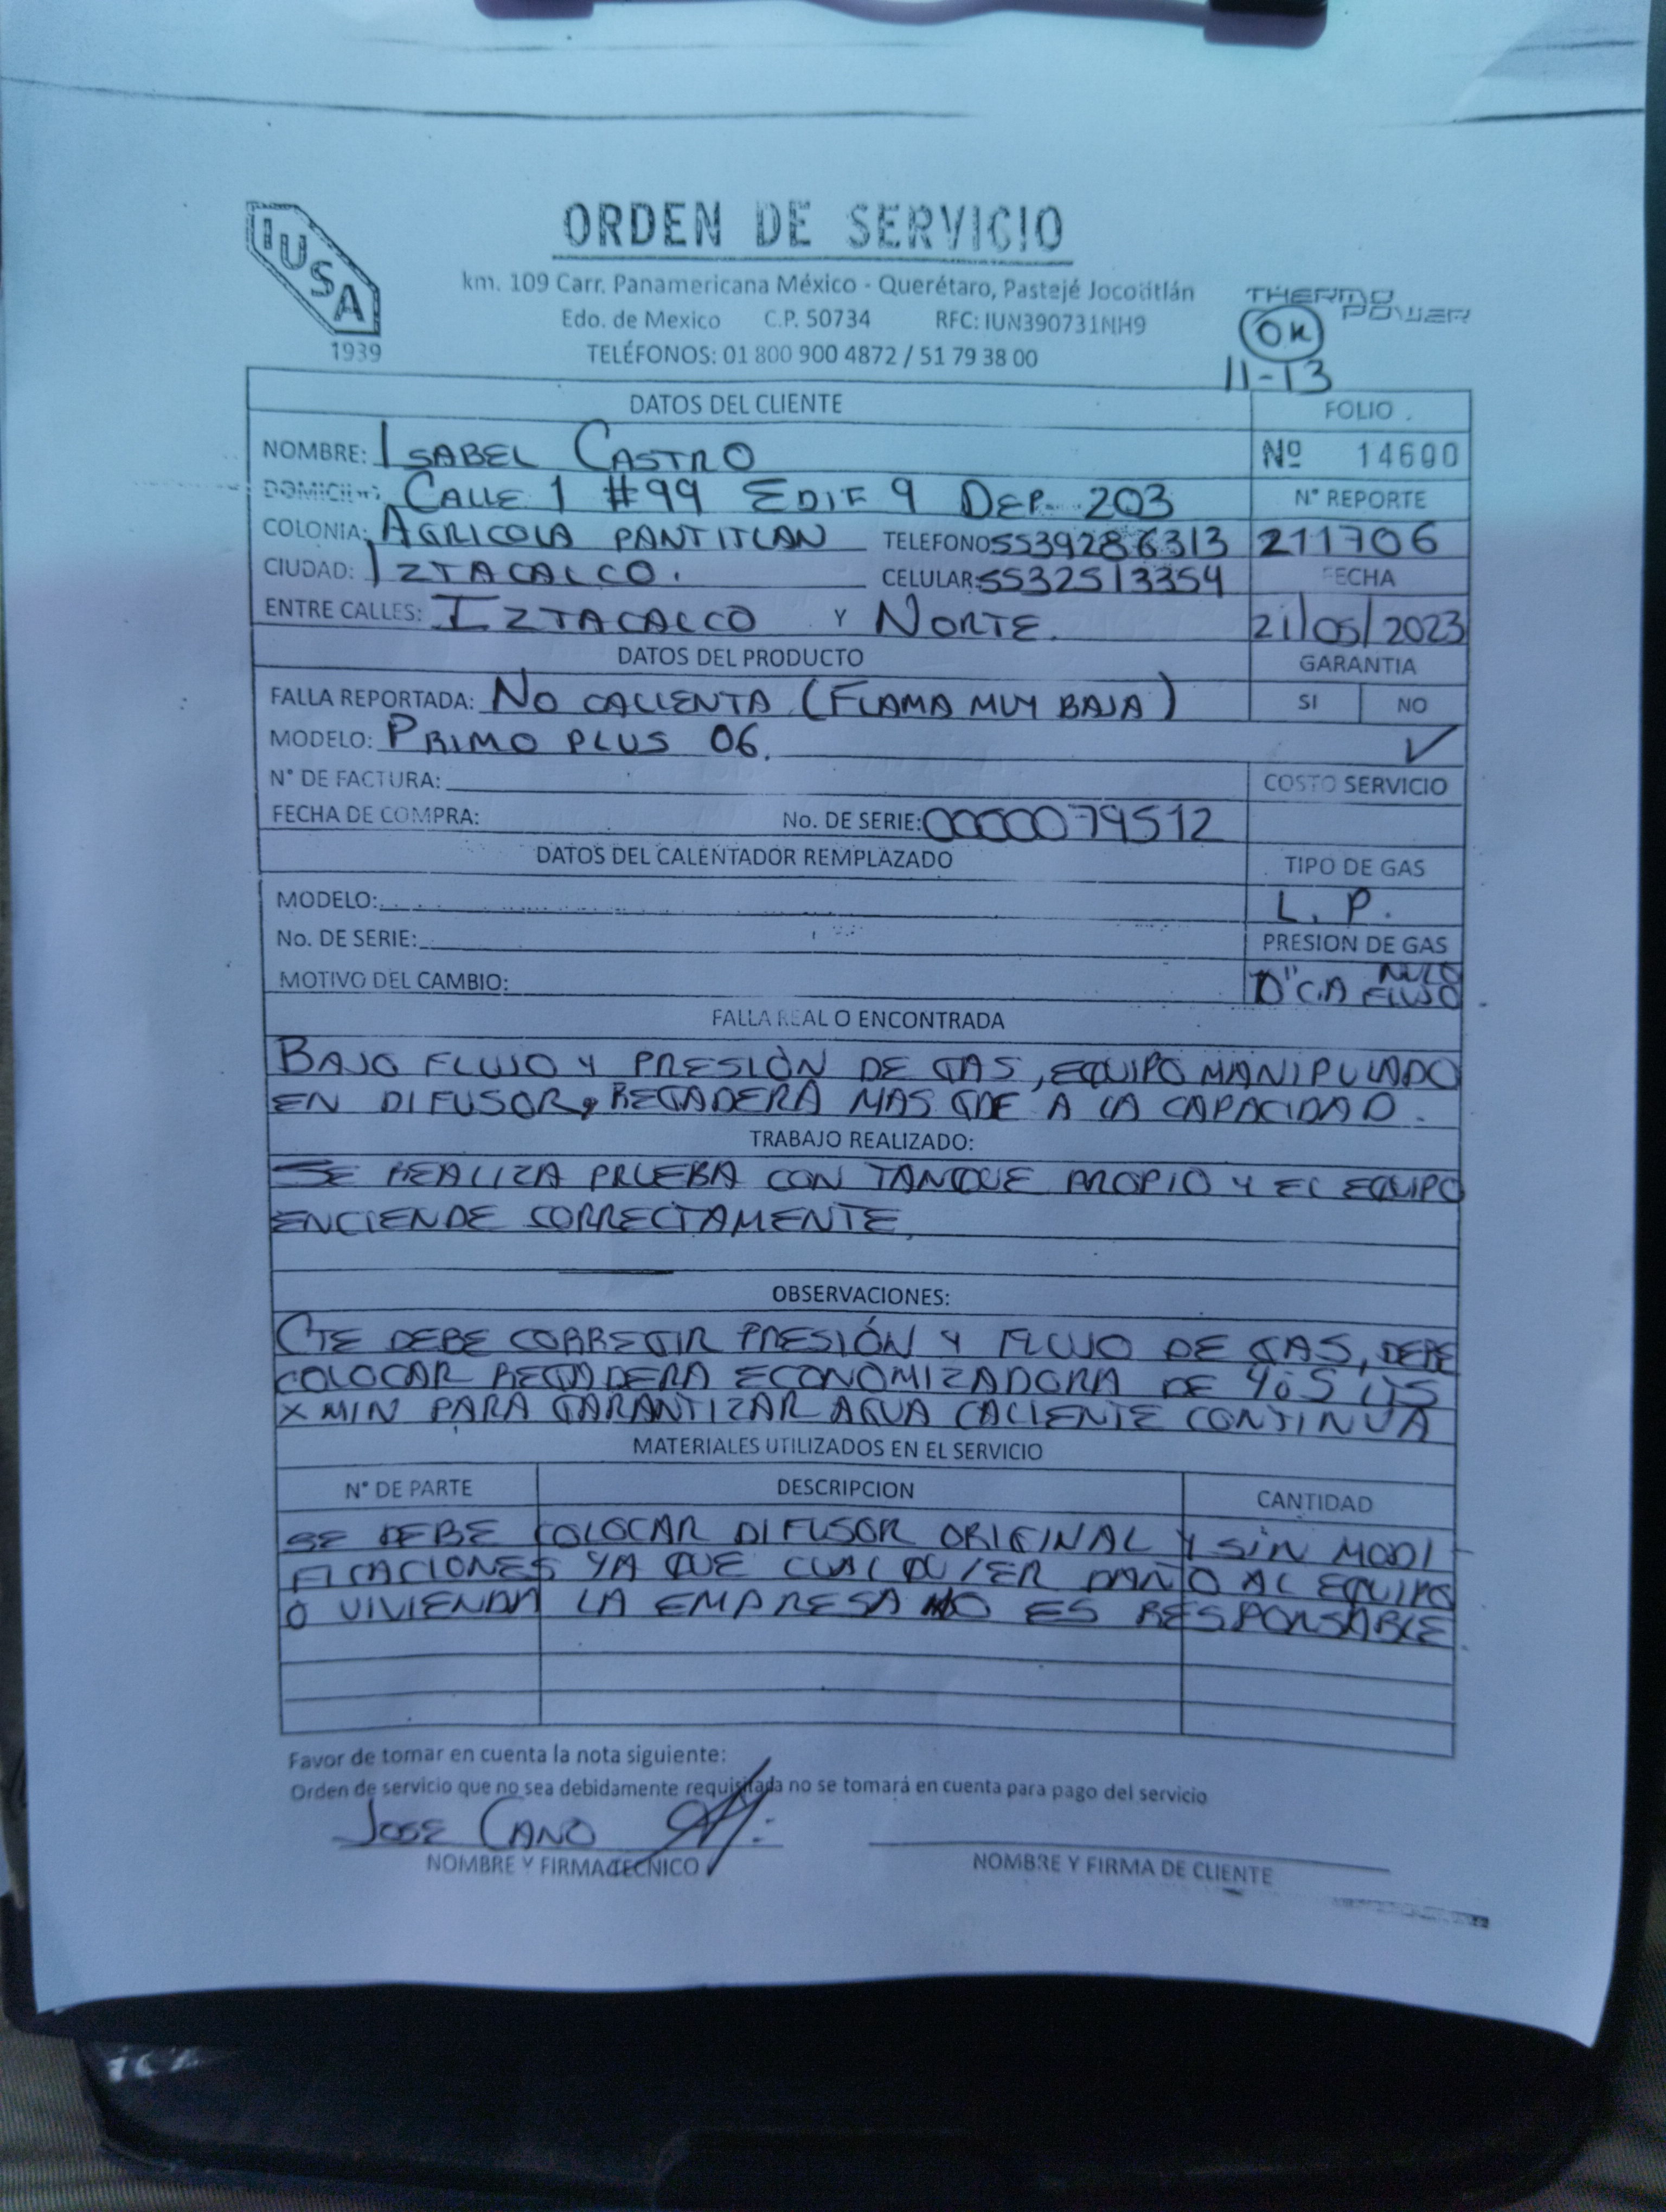 IUSA
1939
ORDEN DE SERVICIO
km. 109 Carr. Panamericana México - Querétaro, Pastejé Jocotitlán
Edo. de Mexico C.P. 50734 RFC: IUN390731NH9
TELÉFONOS: 01 800 900 4872 / 51 79 38 00
THERMO POWER
OK
11-13
DATOS DEL CLIENTE
FOLIO
NOMBRE: ISABEL CASTRO
Nº 14600
DOMICILIO: CALLE 1 #99 EDIF 9 DEP. 203
N° REPORTE
COLONIA: AGRICOLA PANTITLAN TELEFONO 5539286313
211706
CIUDAD: IZTACALCO. CELULAR: 5532513354
FECHA
ENTRE CALLES: IZTACALCO Y NORTE.
21/05/2023
DATOS DEL PRODUCTO
GARANTIA
FALLA REPORTADA: NO CALIENTA (FLAMA MUY BAJA)
SI NO
MODELO: PRIMO PLUS 06.
✓
N° DE FACTURA:
COSTO SERVICIO
FECHA DE COMPRA: No. DE SERIE: 0000079512
DATOS DEL CALENTADOR REMPLAZADO
TIPO DE GAS
MODELO:
L. P.
No. DE SERIE:
PRESION DE GAS
MOTIVO DEL CAMBIO:
C.A FLUJO
FALLA REAL O ENCONTRADA
BAJO FLUJO Y PRESIÓN DE GAS, EQUIPO MANIPULADO
EN DIFUSOR, REGADERA MAS GDE A LA CAPACIDAD.
TRABAJO REALIZADO:
SE REALIZA PRUEBA CON TANQUE PROPIO Y EL EQUIPO
ENCIENDE CORRECTAMENTE
OBSERVACIONES:
CTE DEBE CORREGIR PRESIÓN Y FLUJO DE GAS, DEBE
COLOCAR REGADERA ECONOMIZADORA DE 4 ó 5 LTS
X MIN PARA GARANTIZAR AGUA CALIENTE CONTINUA
MATERIALES UTILIZADOS EN EL SERVICIO
N° DE PARTE DESCRIPCION CANTIDAD
SE DEBE COLOCAR DIFUSOR ORIGINAL Y SIN MODI
FICACIONES YA QUE CUALQUIER DAÑO AL EQUIPO
O VIVIENDA LA EMPRESA NO ES RESPONSABLE.
Favor de tomar en cuenta la nota siguiente:
Orden de servicio que no sea debidamente requisitada no se tomará en cuenta para pago del servicio
JOSE CANO
NOMBRE Y FIRMA TECNICO
NOMBRE Y FIRMA DE CLIENTE